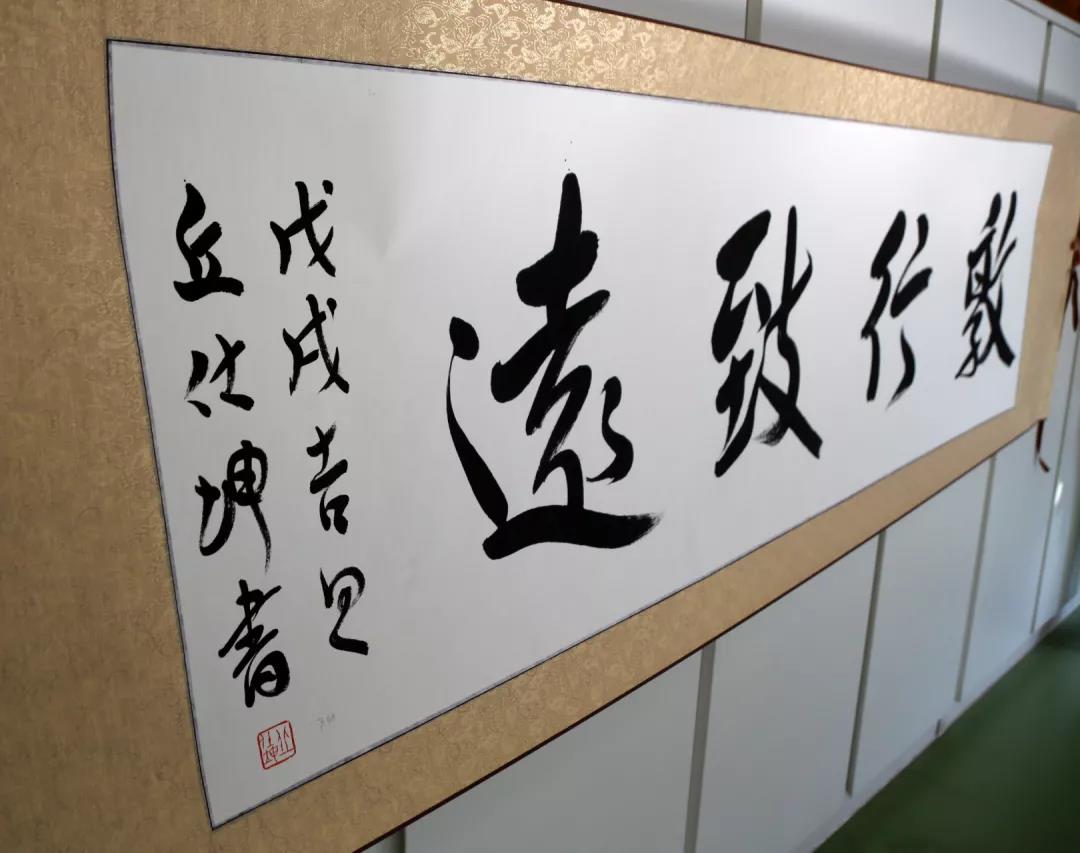 敦行致遠
戊戌吉旦
丘仕坤書